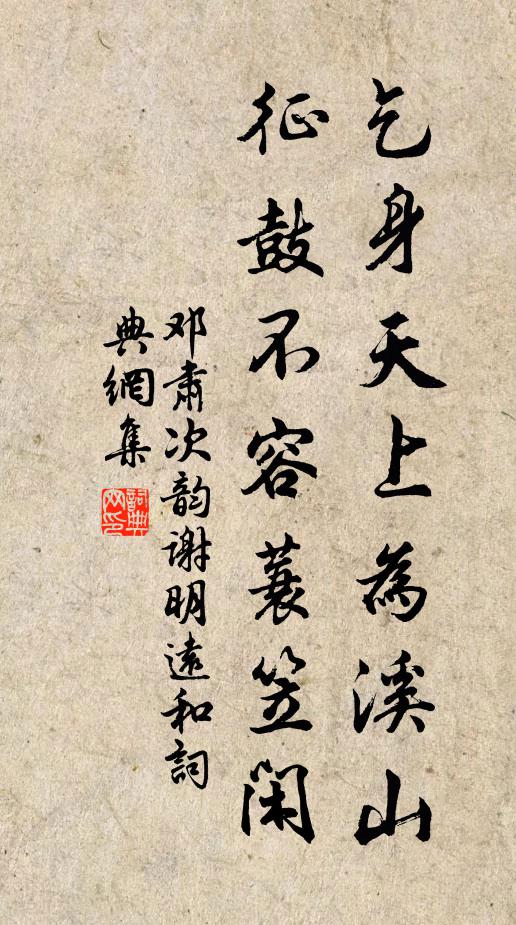 乞身天上為溪山
征鼓不容蓑笠闲
邓肃次韵谢明遠和詞
典網集
詞典網印